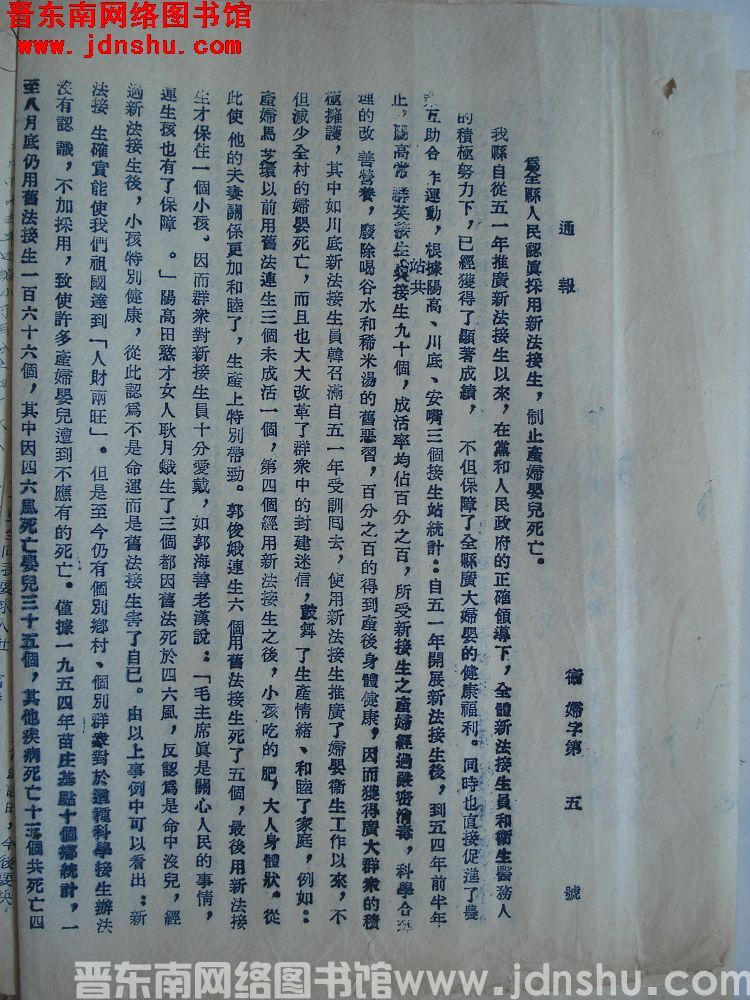 晋东南网络图书馆
www.jdnshu.com
通報
衞婦字第五號
爲全縣人民認眞採用新法接生，制止產婦嬰兒死亡。
我縣自從五一年推廣新法接生以來，在黨和人民政府的正確領導下，全體新法接生員和衞生醫務人
的積極努力下，已經獲得了顯著成績，不但保障了全縣廣大婦嬰的健康福利。同時也直接促進了農
業互助合作運動，根據陽高、川底、安嘴三個接生站統計：自五一年開展新法接生後，到五四年前半年
止，陽高常群英接生站共接生九十個，成活率均佔百分之百，所受新接生之產婦經過嚴密消毒，科學合
理的改善營養，廢除喝谷水和稀米湯的舊惡習，百分之百的得到產後身體健康，因而獲得廣大群衆的積
極擁護，其中如川底新法接生員韓召滿自五一年受訓囘去，使用新法接生推廣了婦嬰衞生工作以來，不
但減少全村的婦嬰死亡，而且也大大改革了群衆中的封建迷信，鼓舞了生產情緒、和睦了家庭，例如：
產婦馬芝環以前用舊法連生三個未成活一個，第四個經用新法接生之後，小孩吃的肥，大人身體狀。從
此使他的夫妻關係更加和睦了，生產上特別帶勁。郭俊娥連生六個用舊法接生死了五個，最後用新法接
生才保住一個小孩。因而群衆對新接生員十分愛戴，如郭海善老漢說：「毛主席眞是關心人民的事情，
連生孩也有了保障。」陽高田憨才女人耿月娥生了三個都因舊法死於四六風，反認爲是命中沒兒，經
過新法接生後，小孩特別健康，從此認爲不是命運而是舊法接生害了自己。由以上事例中可以看出：新
法接生確實能使我們祖國達到「人財兩旺」。但是至今仍有個別鄉村、個別群衆對於這種科學接生辦法
沒有認識，不加採用，致使許多產婦嬰兒遭到不應有的死亡。僅據一九五四年苗庄基點十個鄉統計，一
至八月底仍用舊法接生一百六十六個，其中因四六風死亡嬰兒三十五個，其他疾病死亡十三個共死亡四
晋东南网络图书馆www.jdnshu.com